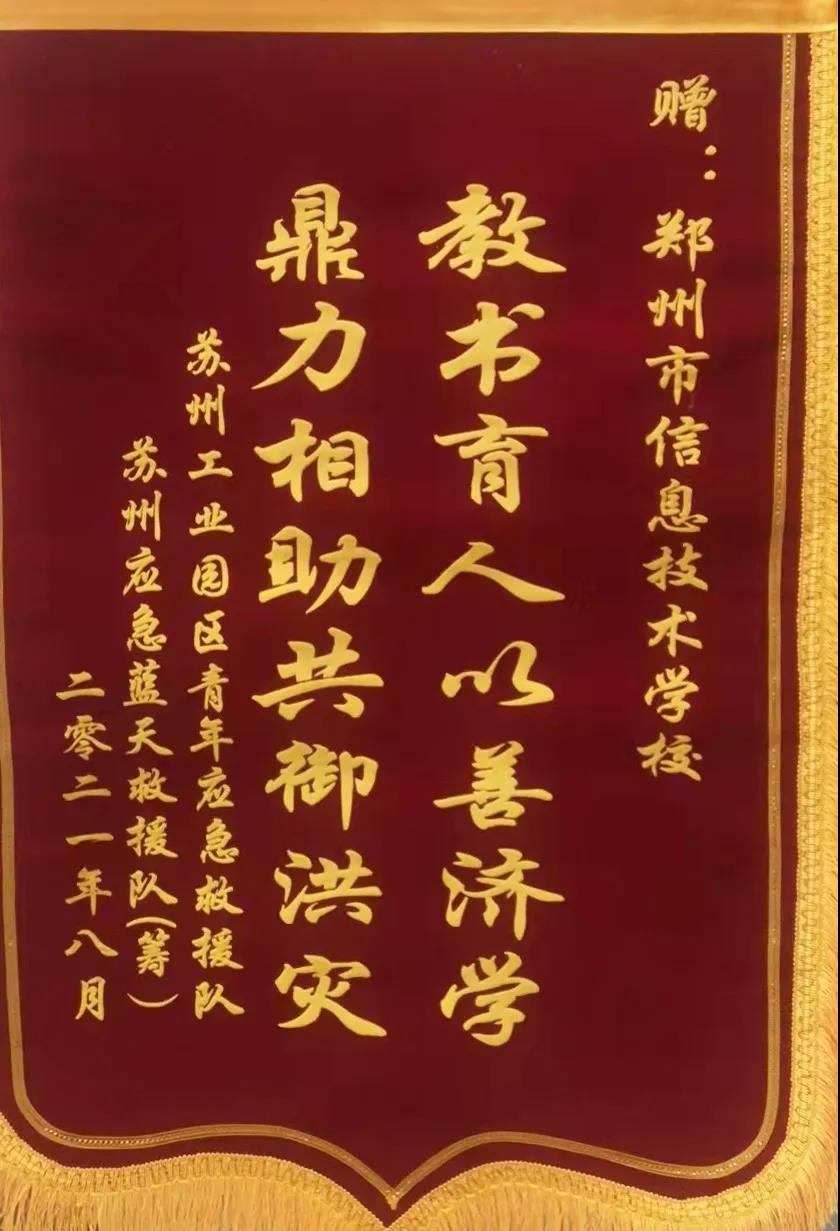 赠：郑州市信息技术学校
教书育人以善济学
鼎力相助共御洪灾
苏州工业园区青年应急救援队
苏州应急蓝天救援队(筹)
二零二一年八月